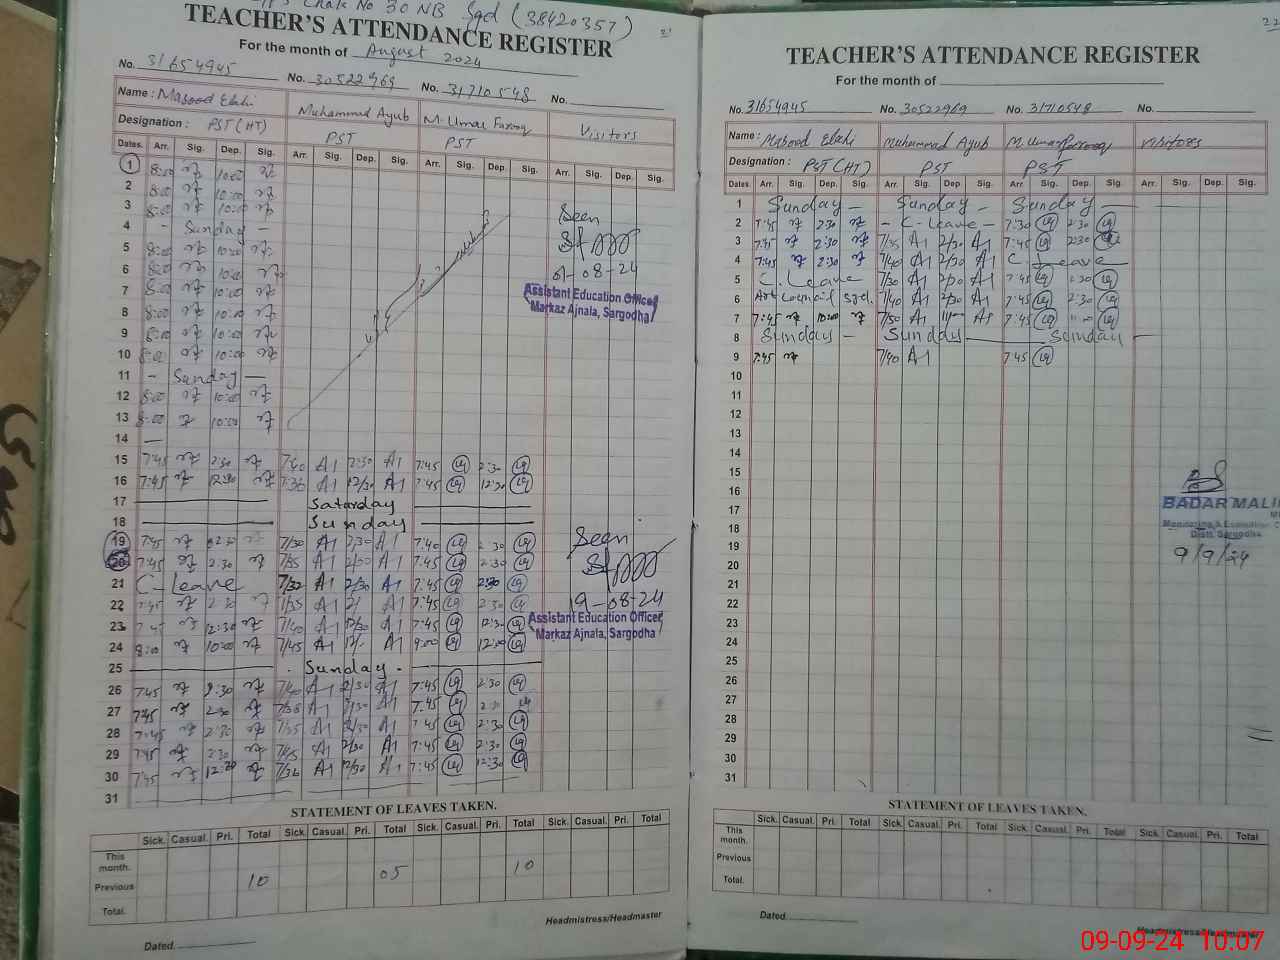 Chak No 30 NB Sgd (38420357)
TEACHER'S ATTENDANCE REGISTER
For the month of August 2024
No. 31654945 No. 30522969 No. 31710548 No.
Name: Masood Elahi Muhammad Ayub M. Umar Farooq Visitors
Designation: PST (HT) PST PST
Dates. Arr. Sig. Dep. Sig. Arr. Sig. Dep. Sig. Arr. Sig. Dep. Sig. Arr. Sig. Dep. Sig.
1 8:00 10:00
2 8:00 10:00
3 8:00 10:00 Seen
4 - Sunday -
5 8:00 10:00
6 8:00 10:00 01-08-24
7 8:00 10:00 Assistant Education Officer
8 8:00 10:00 Markaz Ajnala, Sargodha
9 8:00 10:00
10 8:00 10:00
11 - Sunday -
12 8:00 10:00
13 8:00 10:00
14 —
15 7:45 2:30 7/40 A1 2:30 A1 7:45 2:30
16 7:45 12:30 7:36 A1 12/30 A1 7:45 12:30
17 Saturday
18 Sunday
19 7:45 2:30 7/30 A1 2/30 A1 7:40 2:30 Seen
20 7:45 2:30 7/35 A1 2/30 A1 7:45 2:30
21 C-Leave 7/32 A1 2/30 A1 7:45 2:30
22 7:45 2:30 7/35 A1 2/ A1 7:45 2:30 19-08-24
23 7:45 12:30 7/40 A1 12/30 A1 7:45 12:30 Assistant Education Officer
24 8:00 10:00 7/45 A1 12/- A1 9:00 12:00 Markaz Ajnala, Sargodha
25 Sunday
26 7:45 2:30 7/40 A1 2/30 A1 7:45 2:30
27 7:45 2:30 7/38 A1 2/30 A1 7:45 2:30
28 7:45 2:30 7/35 A1 2/30 A1 7:45 2:30
29 7:45 2:30 7/45 A1 2/30 A1 7:45 2:30
30 7:45 12:30 7/36 A1 12/30 A1 7:45 12:30
31
STATEMENT OF LEAVES TAKEN.
Sick. Casual. Pri. Total Sick. Casual. Pri. Total Sick. Casual. Pri. Total Sick. Casual. Pri. Total
This month.
Previous 10 05 10
Total.
Headmistress/Headmaster
Dated.
22
TEACHER'S ATTENDANCE REGISTER
For the month of
No. 31654945 No. 30522969 No. 31710548 No.
Name: Masood Elahi Muhammad Ayub M. Umar Farooq Visitores
Designation: PST (HT) PST PST
Dates. Arr. Sig. Dep. Sig. Arr. Sig. Dep. Sig. Arr. Sig. Dep. Sig. Arr. Sig. Dep. Sig.
1 Sunday - Sunday - Sunday -
2 7:45 2:30 - C-Leave - 7:30 2:30
3 7:45 2:30 7/35 A1 2/30 A1 7:45 2:30
4 7:45 2:30 7/40 A1 2/30 A1 C. Leave
5 C. Leave 7/30 A1 2/30 A1 7:45 2:30
6 Art Council Sgd. 7/40 A1 2/30 A1 7:45 2:30
7 7:45 10:00 7/50 A1 A1 7:45
8 Sunday - Sunday Sunday -
9 7:45 7/40 A1 7:45
10
11
12
13
14
15
16
17 BADAR MALI
18 Monitoring & Evaluation
19 Distt. Sargodha
20 9/9/24
21
22
23
24
25
26
27
28
29
30
31
STATEMENT OF LEAVES TAKEN.
Sick. Casual. Pri. Total Sick. Casual. Pri. Total Sick. Casual. Pri. Total Sick. Casual. Pri. Total
This month.
Previous
Total.
Dated.
Headmistress/Headmaster
09-09-24 10.07